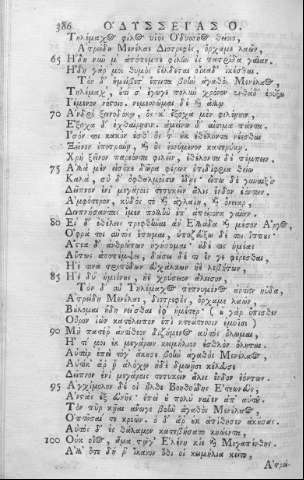 386 ΟΔΥΣΣΕΙΑΣ Ο.
Τηλέμαχος φίλος υἱὸς Ὀδυσσῆος θείοιο,
Ἀτρείδη Μενέλαε Διοτρεφὲς, ὄρχαμε λαῶν,
65 Ἤδη νῦν μ᾽ ἀπόπεμπε φίλην ἐς πατρίδα γαῖαν.
Ἤδη γάρ μοι θυμὸς ἐέλδεται οἴκαδ᾽ ἱκέσθαι.
Τὸν δ᾽ ἠμείβετ᾽ ἔπειτα βοὴν ἀγαθὸς Μενέλαος
Τηλέμαχ᾽, οὔτι σ᾽ ἔγωγε πολὺν χρόνον ἐνθάδ᾽ ἐρύξω
Ἱέμενον νόστοιο, νεμεσσῶμαι δὲ καὶ ἄλλῳ
70 Ἀνδρὶ ξεινοδόκῳ, ὅς κ᾽ ἔξοχα μὲν φιλέῃσιν,
Ἔξοχα δ᾽ ἐχθαίρῃσιν, ἀμείνω δ᾽ αἴσιμα πάντα.
Ἶσόν τοι κακόν ἐσθ᾽ ὅς τ᾽ οὐκ ἐθέλοντα νέεσθαι
Ξεῖνον ἐποτρύνῃ, καὶ ὃς ἐσσύμενον κατερύκῃ.
Χρὴ ξεῖνον παρεόντα φιλεῖν, ἐθέλοντα δὲ πέμπειν.
75 Ἀλλὰ μέν᾽ εἰσόκε δῶρα φέρων ἐπιδίφρια θείω
Καλὰ, σὺ δ᾽ ὀφθαλμοῖσιν ἴδῃς· εἴπω δὲ γυναιξὶ
Δεῖπνον ἐνὶ μεγάροις τετυκεῖν ἅλις ἔνδον ἐόντων.
Ἀμφότερον, κῦδός τε καὶ ἀγλαΐη, καὶ ὄνειαρ,
Δειπνήσαντας ἴμεν πολλὴν ἐπ᾽ ἀπείρονα γαῖαν.
80 Εἰ δ᾽ ἐθέλεις τραφθῆναι ἀν᾽ Ἑλλάδα καὶ μέσον Ἄργος,
Ὄφρα τοι αὐτὸς ἕπωμαι, ὑποζεύξω δέ τοι ἵππους.
Ἄστεα δ᾽ ἀνθρώπων ἡγήσομαι· οὐδέ τις ὑμέας
Αὔτως ἀποπέμψει, δώσει δέ τι ἕν γε φέρεσθαι,
Ἠέ τινα τριπόδων εὐχάλκων ἠὲ λεβήτων,
85 Ἠὲ δύ᾽ ἡμιόνους, ἠὲ χρύσειον ἄλεισον.
Τὸν δ᾽ αὖ Τηλέμαχος πεπνυμένος ἀντίον ηὔδα,
Ἀτρείδη Μενέλαε, Διοτρεφὲς, ὄρχαμε λαῶν,
Βούλομαι ἤδη νεῖσθαι ἐφ᾽ ἡμέτερ᾽· (οὐ γὰρ ὄπισθεν
Οὖρον ἰὼν κατέλειπον ἐπὶ κτεάτεσσιν ἐμοῖσι)
90 Μὴ πατέρ᾽ ἀντίθεον διζήμενος αὐτὸς ὄλωμαι,
Ἤ τί μοι ἐκ μεγάρων κειμήλιον ἐσθλὸν ὄληται.
Αὐτὰρ ἐπεὶ τόγ᾽ ἄκουσε βοὴν ἀγαθὸς Μενέλαος,
Αὐτίκ᾽ ἄρ᾽ ᾗ ἀλόχῳ ἠδὲ δμωῇσι κέλευσε
Δεῖπνον ἐνὶ μεγάροις τετυκεῖν ἅλις ἔνδον ἐόντων.
95 Ἀγχίμολον δέ οἱ ἦλθε Βοηθοίδης Ἐτεωνεὺς,
Ἀνστὰς ἐξ εὐνῆς· ἐπεὶ οὐ πολὺ ναῖεν ἀπ᾽ αὐτοῦ.
Τὸν πῦρ κῆαι ἄνωγε βοὴν ἀγαθὸς Μενέλαος,
Ὀπτῆσαί τε κρεῶν. ὁ δ᾽ ἄρ᾽ οὐκ ἀπίθησεν ἀκούσας.
Αὐτὸς δ᾽ ἐς θάλαμον κατεβήσατο κηώεντα,
100 Οὐκ οἶος, ἅμα τῷγ᾽ Ἑλένη κίε καὶ Μεγαπένθης.
Ἀλλ᾽ ὅτε δή ῥ᾽ ἵκανον ὅθι οἱ κειμήλια κεῖτο,
Ἀτρεί-